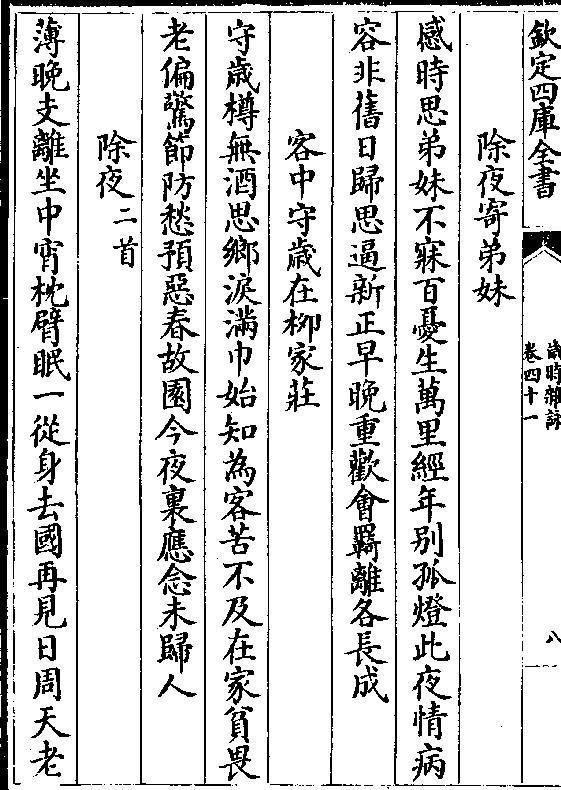 欽定四庫全書
歲時雜詠
卷四十一
八
除夜寄弟妹
感時思弟妹不寐百憂生萬里經年别孤燈此夜情病
容非舊日歸思逼新正早晚重歡會羇離各長成
客中守歲在柳家莊
守歲樽無酒思鄉淚滿巾始知為客苦不及在家貧畏
老偏驚節防愁預惡春故園今夜裏應念未歸人
除夜二首
薄晚支離坐中宵枕臂眠一從身去國再見日周天老